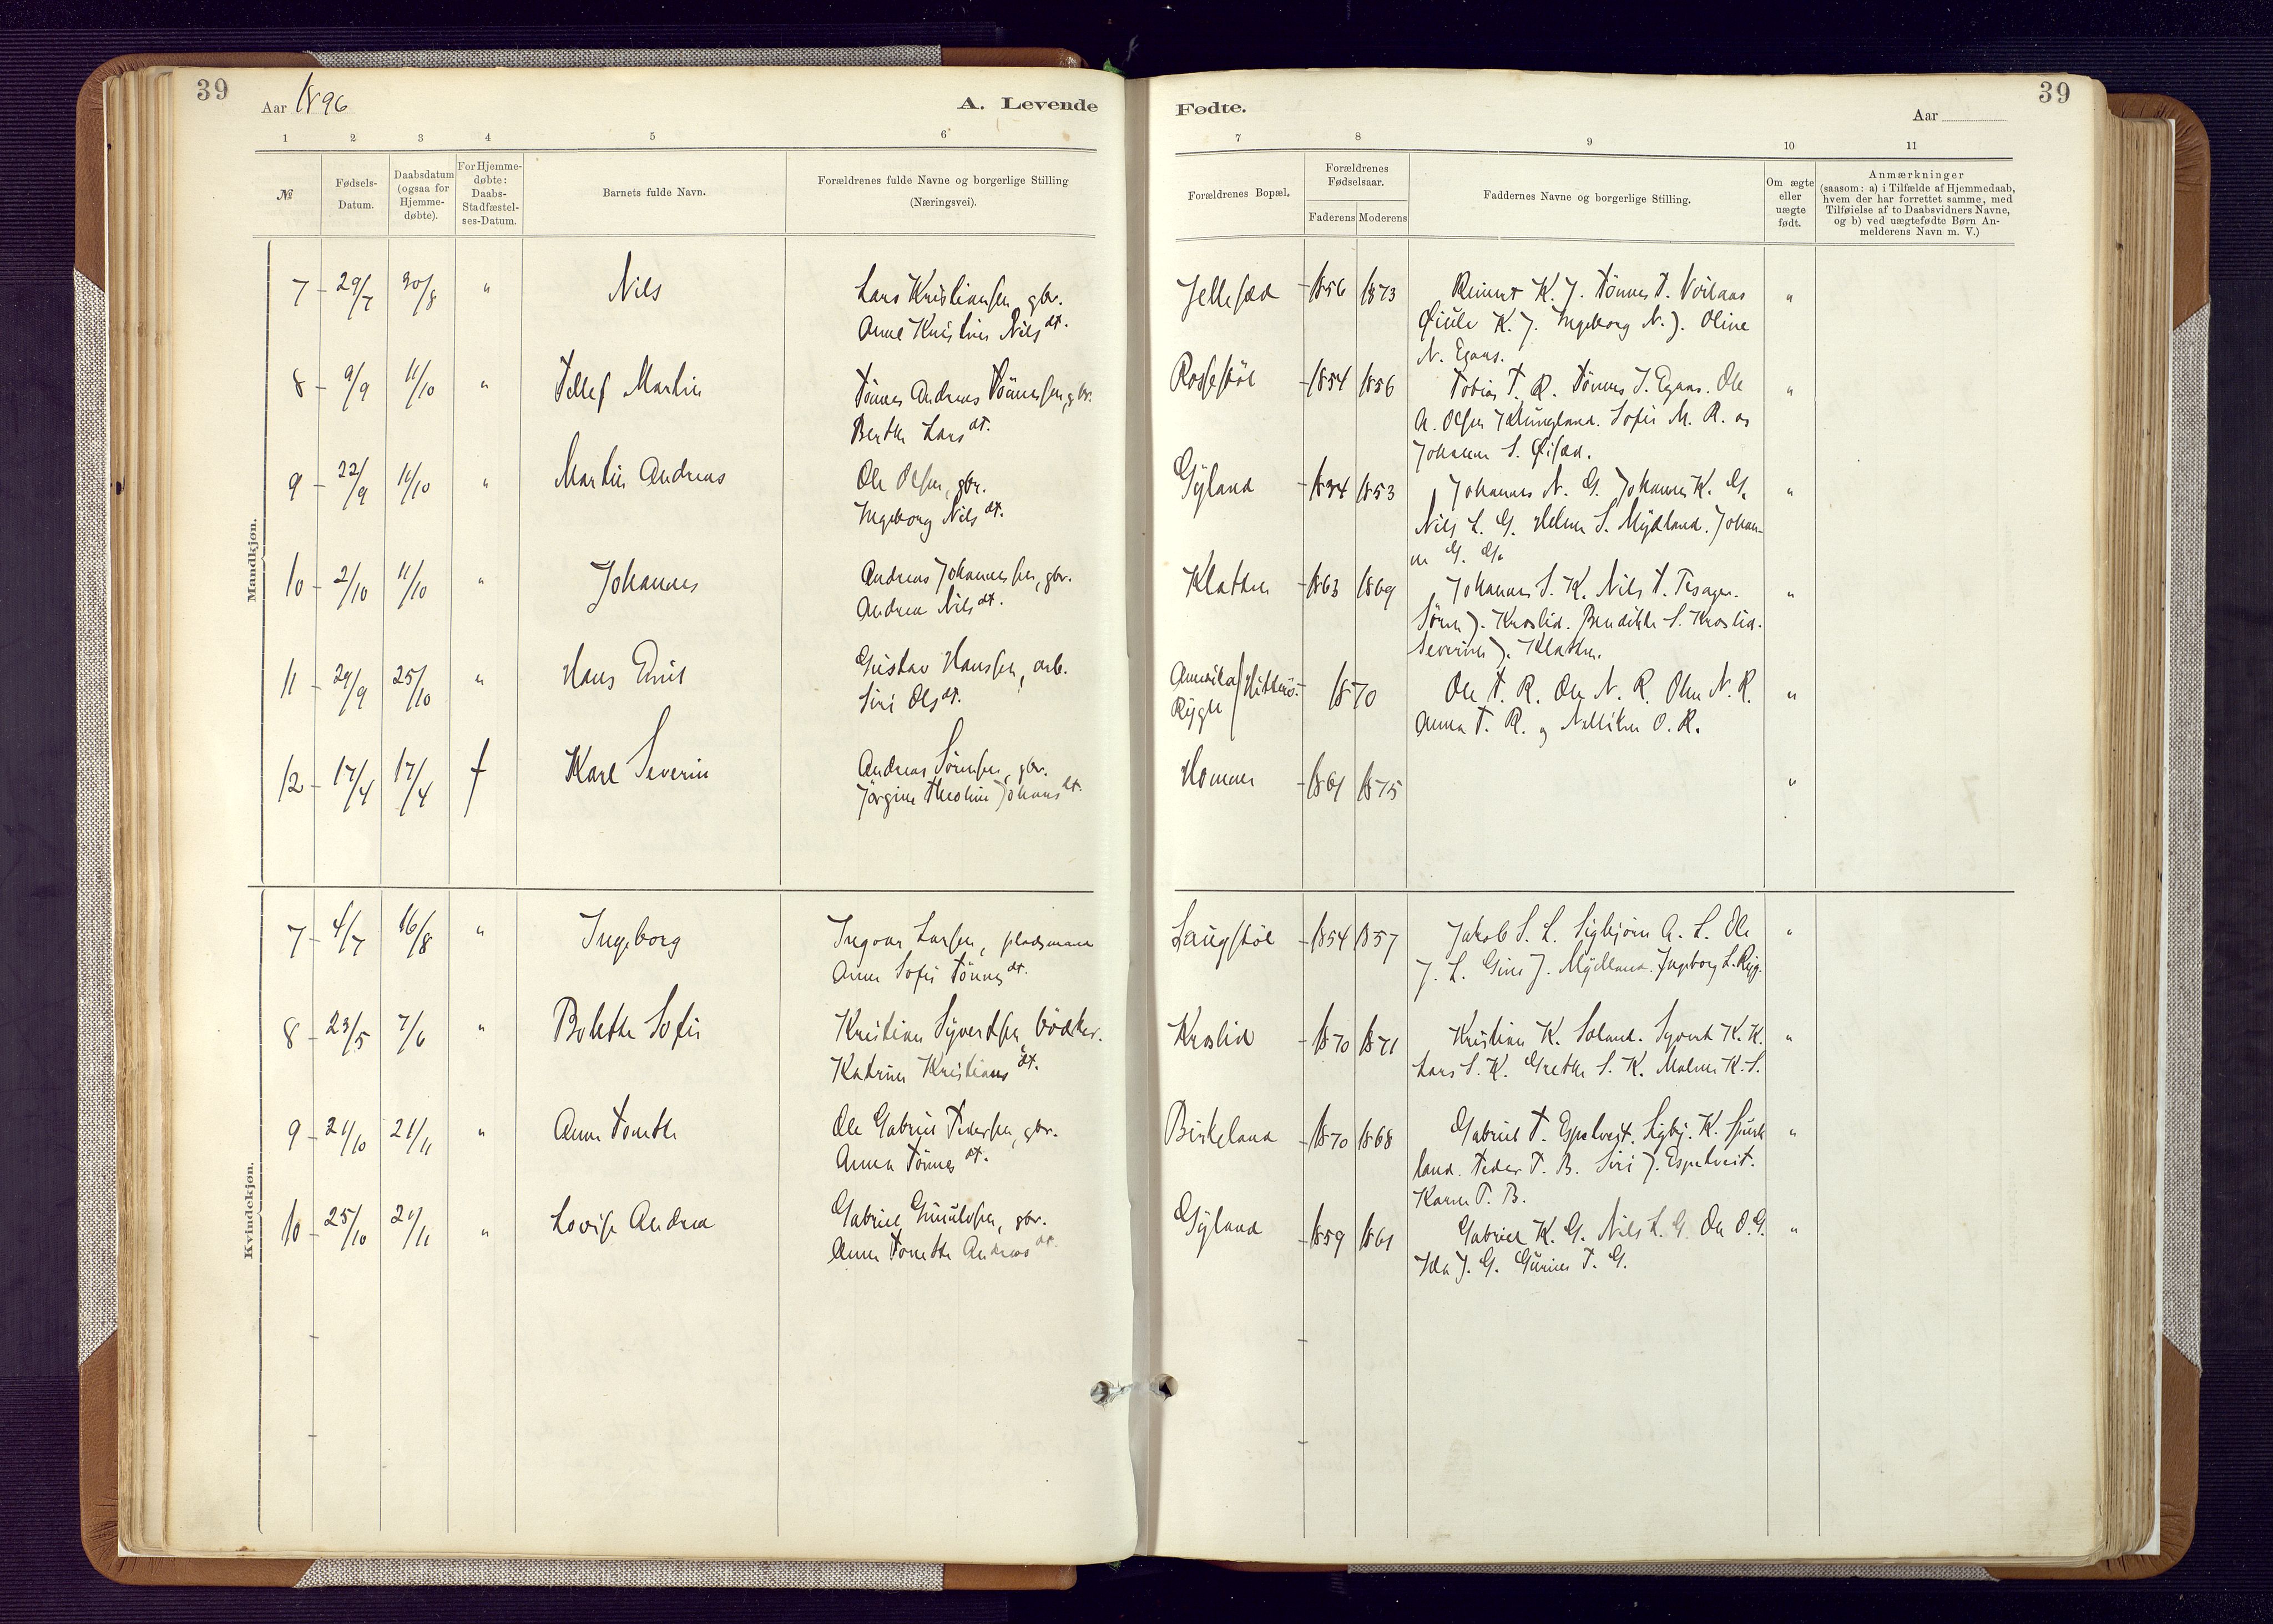 39
Aar 1896
A. Levende
1 2 3 4 5 6
№
Fødsels-
Datum.
Daabsdatum
(ogsaa for
Hjemme-
døbte).
For Hjemme-
døbte:
Daabs-
Stadfæstel-
ses-Datum.
Barnets fulde Navn.
Forældrenes fulde Navne og borgerlige Stilling
(Næringsvei).
Mandkjøn.
7 29/7 30/8 " Nils Lars Kristiansen, gbr.
Anne Kristine Nilsdt.
8 9/9 11/10 " Tellef Martin Tönnes Andreas Tönnessen, gbr.
Berthe Larsdt.
9 22/9 11/10 " Martin Andreas Ole Olsen, gbr.
Ingeborg Nilsdt.
10 2/10 11/10 " Johannes Andreas Johannessen, gbr.
Andrea Nilsdt.
11 29/9 25/10 " Hans Emil Gustav Hanssen, arb.
Siri Olsdt.
12 17/4 17/4 † Karl Severin Andreas Sörensen, gbr.
Jörgine Theoline Johansdt.
Kvindekjøn.
7 4/7 16/8 " Ingeborg Ingvar Larsen, pladsmand
Anne Sofie Tönnesdt.
8 23/5 7/6 " Bolette Sofie Kristian Syvertsen, bödker.
Katrine Kristiansdt.
9 21/10 21/11 " Anne Tonette Ole Gabriel Pedersen, gbr.
Anna Tönnesdt.
10 25/10 21/11 " Lovise Andrea Gabriel Gunuldsen, gbr.
Anne Tonette Andreasdt.
Fødte.
Aar
39
7 8 9 10 11
Forældrenes Bopæl.
Forældrenes
Fødselsaar.
Faderens Moderens
Faddernes Navne og borgerlige Stilling.
Om ægte
eller
uægte
født.
Anmærkninger
(saasom: a) i Tilfælde af Hjemmedaab,
hvem der har forrettet samme, med
Tilføielse af to Daabsvidners Navne,
og b) ved uægtefødte Børn An-
melderens Navn m. V.)
Jellesæd 1856 1873 Reinert K. J. Tönnes T.
K. J. Ingeborg N. J. Oline "
N. Egaas.
Rossestöl 1854 1856 Tobias T. R. Tönnes J. Egaas. Ole "
A. Olsen Sofie M. R. og
Johanne S. Öisæd.
Gyland 1834 1853 Johannes N. G. Johannes K. G. "
Nils L. G. Helene S. Mydland. Johan-
ne G. G.
Klathei 1863 1869 Johannes S. K. Nils T. Tesager. "
Sören J. Kroslid. Bendikte S. Kroslid.
Severine J. Klathei.
Rygh Hitterö. 1870 Ole T. R. Ole N. R. Oline N. R. "
Anna T. R. og O. R.
Homme 1861 1875 "
Laugstöl 1854 1857 Jakob S. L. Sigbjörn A. L. Ole "
J. L. Gine J. Mydland. Ingeborg L. Ryg.
Kroslid 1870 1871 Kristian K. Soland. Syvert K. K. "
Lars S. K. Grethe S. K. Malene K. S.
Birkeland 1870 1868 Gabriel T. Espetveit. Sigbj. K. Spurk- "
land. Peder P. B. Siri J. Espetveit.
Karen P. B.
Gyland 1859 1861 Gabriel K. G. Nils L. G. Ole O. G. "
Ida J. G. Gurine T. G.